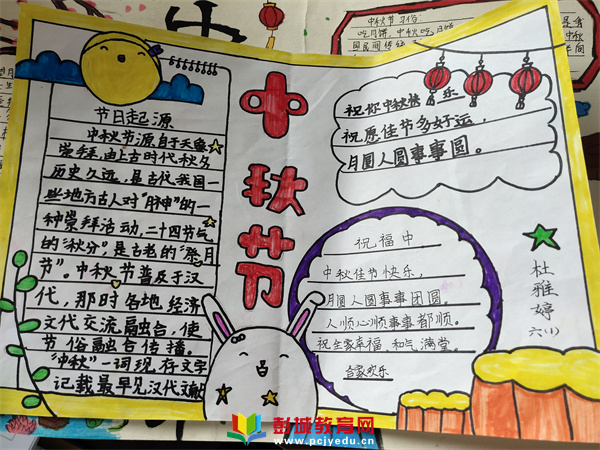 中秋节
节日起源
中秋节源自天象
崇拜,由上古时代秋夕
历史久远,是古代我国一
些地方古人对“月神”的一
种崇拜活动,二十四节气
的“秋分”,是古老的“祭月
节”。中秋节普及于汉
代,那时各地经济
文代交流融合,使
节俗融合传播。
“中秋”一词现存文字
记载最早见汉代文献
祝你中秋快乐
祝愿佳节多好运,
月圆人圆事事圆。
祝福中
中秋佳节快乐,
月圆人圆事事团圆,
人顺心顺事事都顺。
祝全家幸福,和气满堂。
合家欢乐
杜雅婷
六(1)
中秋节习俗:
吃月饼,中秋吃月饼
彭城教育网
www.pcjyedu.cn